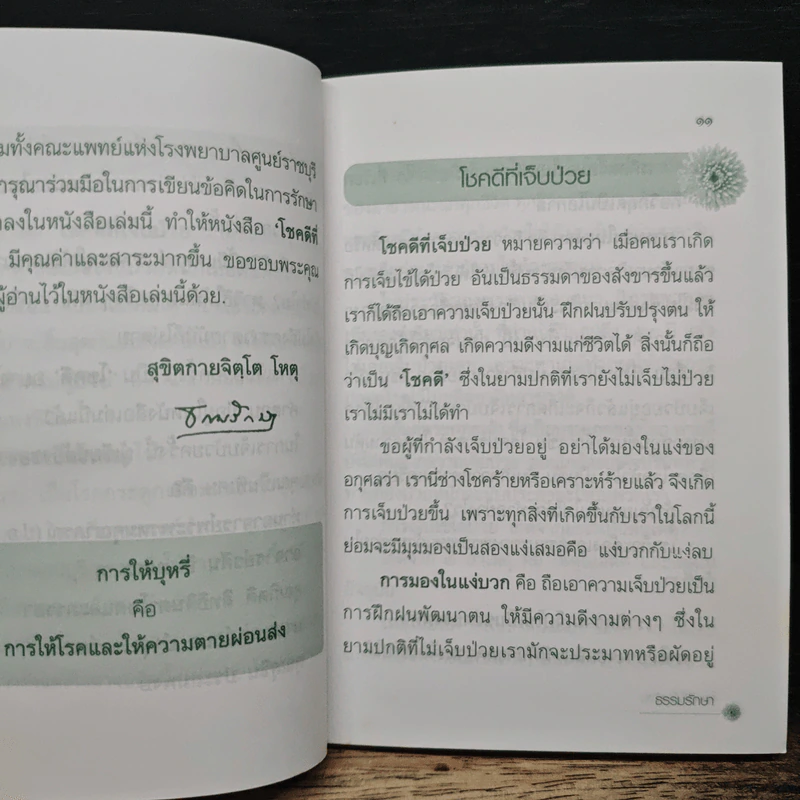 มทั้งคณะแพทย์แห่งโรงพยาบาลศูนย์ราชบุรี
กรุณาร่วมมือในการเขียนข้อคิดในการรักษา
งลงในหนังสือเล่มนี้ ทำให้หนังสือ ‘โชคดีที่
มีคุณค่าและสาระมากขึ้น ขอขอบพระคุณ
ผู้อ่านไว้ในหนังสือเล่มนี้ด้วย.
สุขิตกายจิตฺโต โหตุ
ธรรมรักษา
การให้บุหรี่
คือ
การให้โรคและให้ความตายผ่อนส่ง
๑๑
โชคดีที่เจ็บป่วย
โชคดีที่เจ็บป่วย หมายความว่า เมื่อคนเราเกิด
การเจ็บไข้ได้ป่วย อันเป็นธรรมดาของสังขารขึ้นแล้ว
เราก็ได้ถือเอาความเจ็บป่วยนั้น ฝึกฝนปรับปรุงตน ให้
เกิดบุญเกิดกุศล เกิดความดีงามแก่ชีวิตได้ สิ่งนั้นก็ถือ
ว่าเป็น ‘โชคดี’ ซึ่งในยามปกติที่เรายังไม่เจ็บไม่ป่วย
เราไม่มีเราไม่ได้ทำ
ขอผู้ที่กำลังเจ็บป่วยอยู่ อย่าได้มองในแง่ของ
อกุศลว่า เรานี่ช่างโชคร้ายหรือเคราะห์ร้ายแล้ว จึงเกิด
การเจ็บป่วยขึ้น เพราะทุกสิ่งที่เกิดขึ้นกับเราในโลกนี้
ย่อมจะมีมุมมองเป็นสองแง่เสมอคือ แง่บวกกับแง่ลบ
การมองในแง่บวก คือ ถือเอาความเจ็บป่วยเป็น
การฝึกฝนพัฒนาตน ให้มีความดีงามต่างๆ ซึ่งใน
ยามปกติที่ไม่เจ็บป่วยเรามักจะประมาทหรือผัดอยู่
ธรรมรักษา